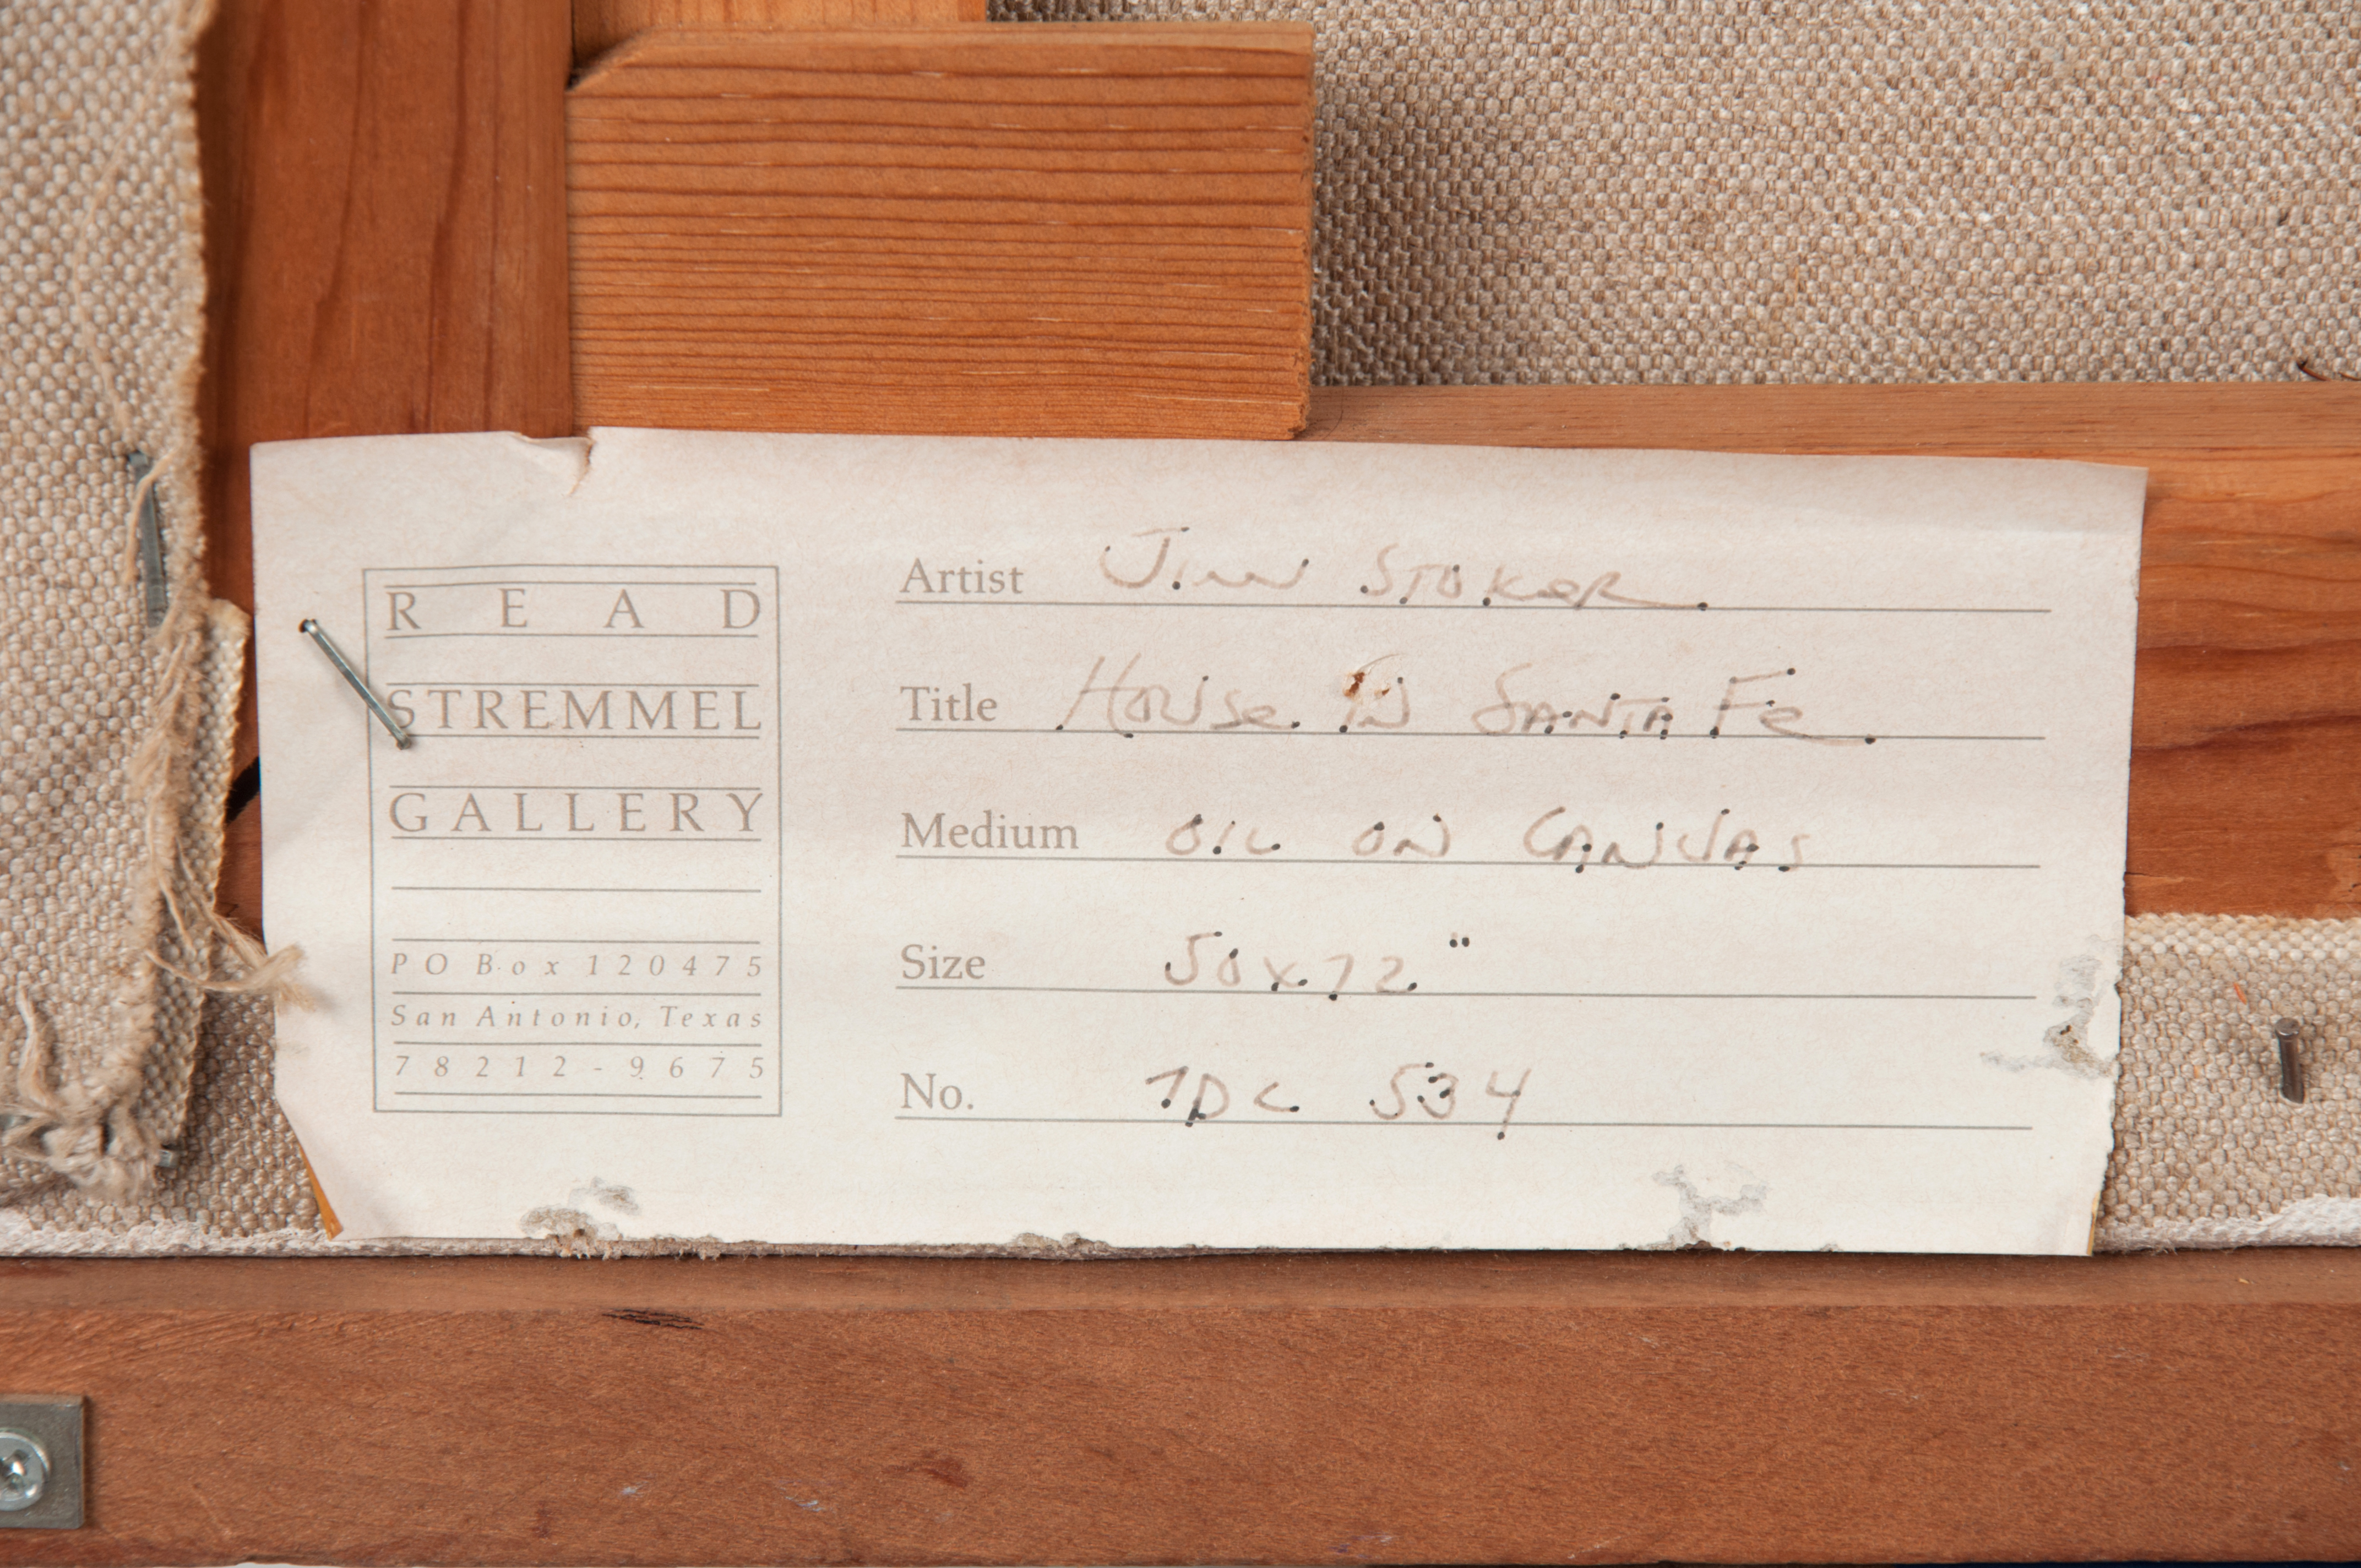 READ
STREMMEL
GALLERY
PO Box 120475
San Antonio, Texas
78212-9675
Artist Jim Stoker
Title House in Santa Fe
Medium OIL ON CANVAS
Size 50x72"
No. 7DC 534